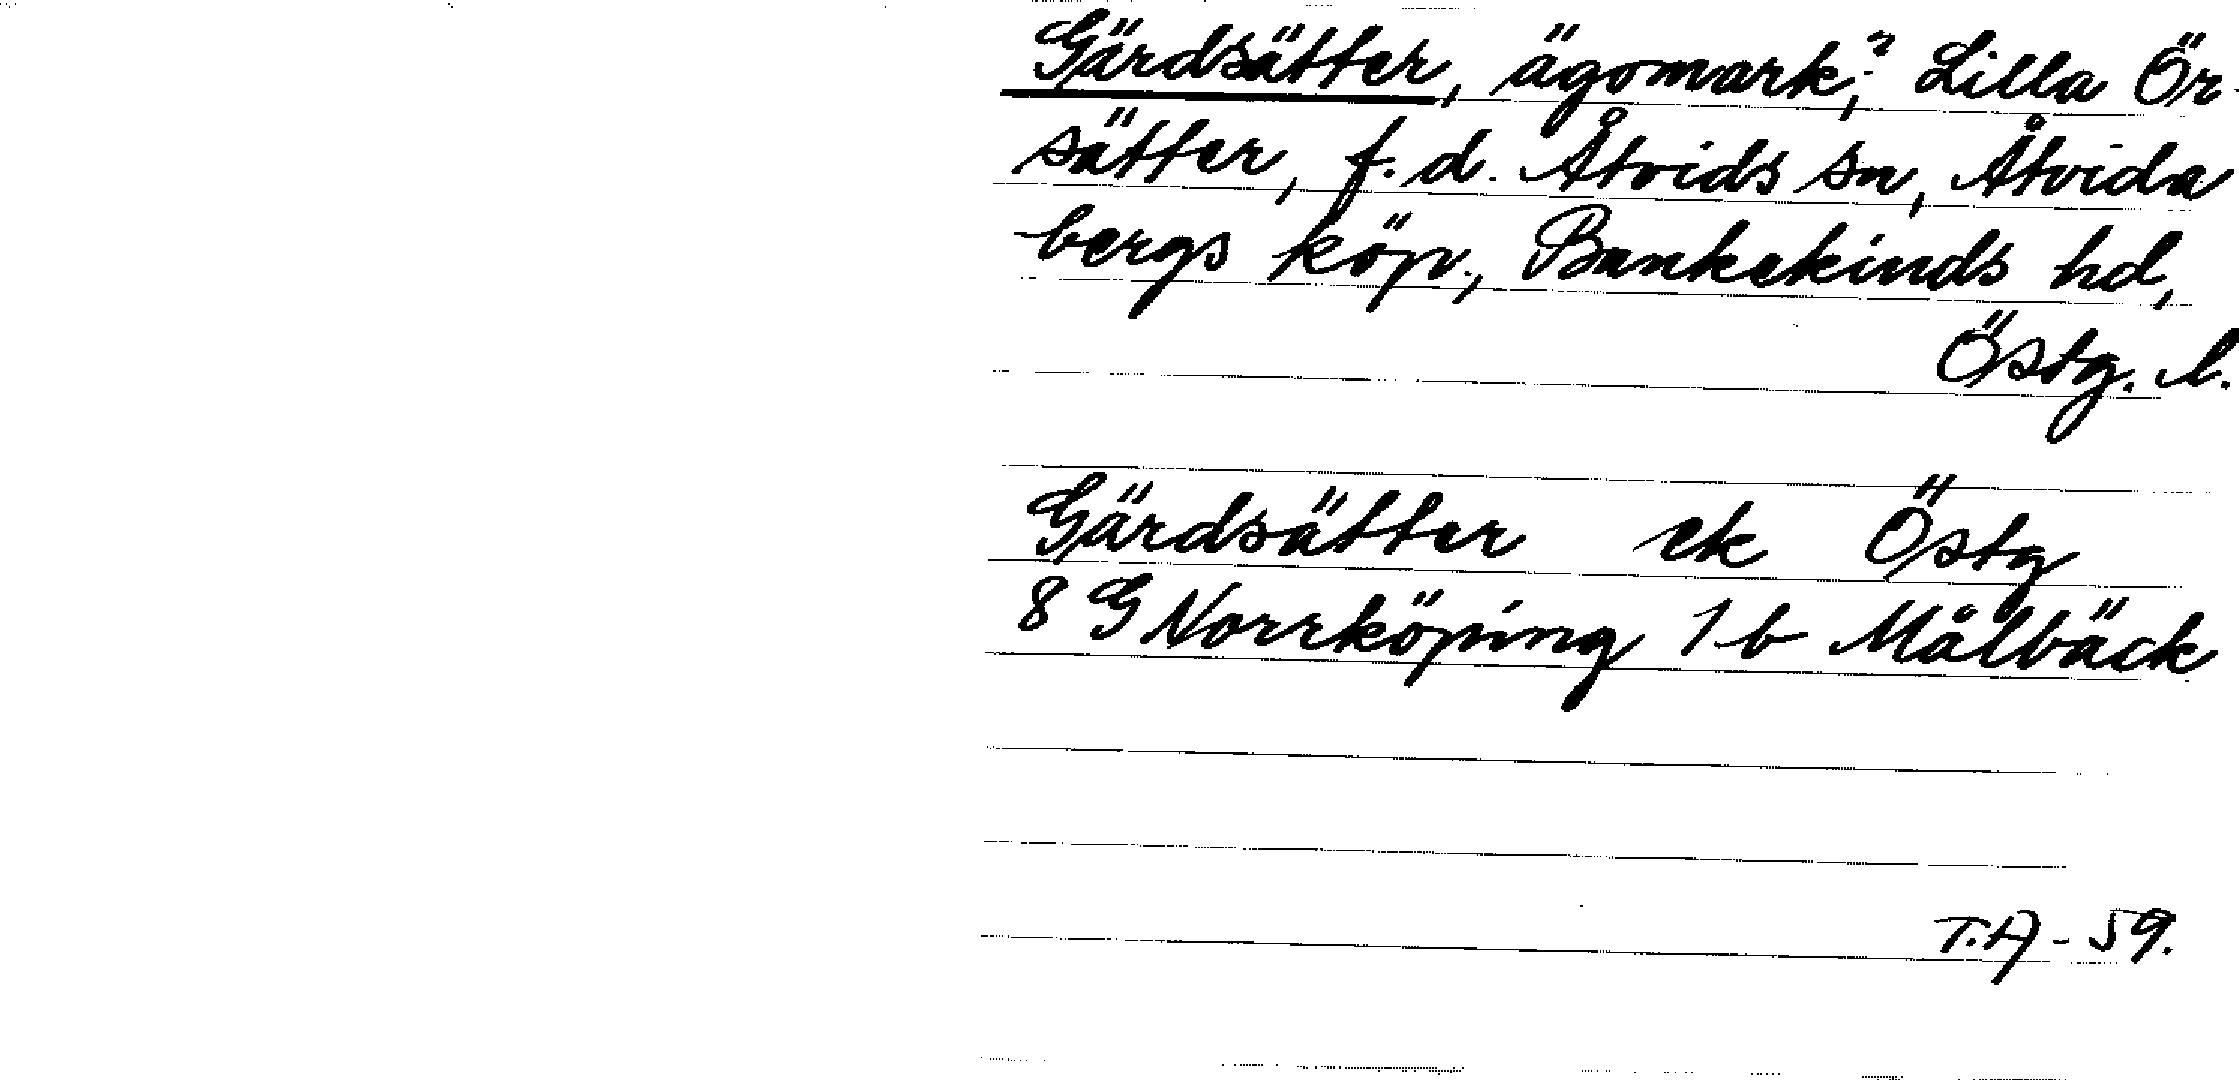 Gärdsätter, ägomark,? Lilla Ör-
sätter, f.d. Åtvids sn, Åtvida
bergs köp., Bankekinds hd,
Östg. l.
Gärdsätter ek Östg
8 G Norrköping 1 b Målbäck
T.A - 59.